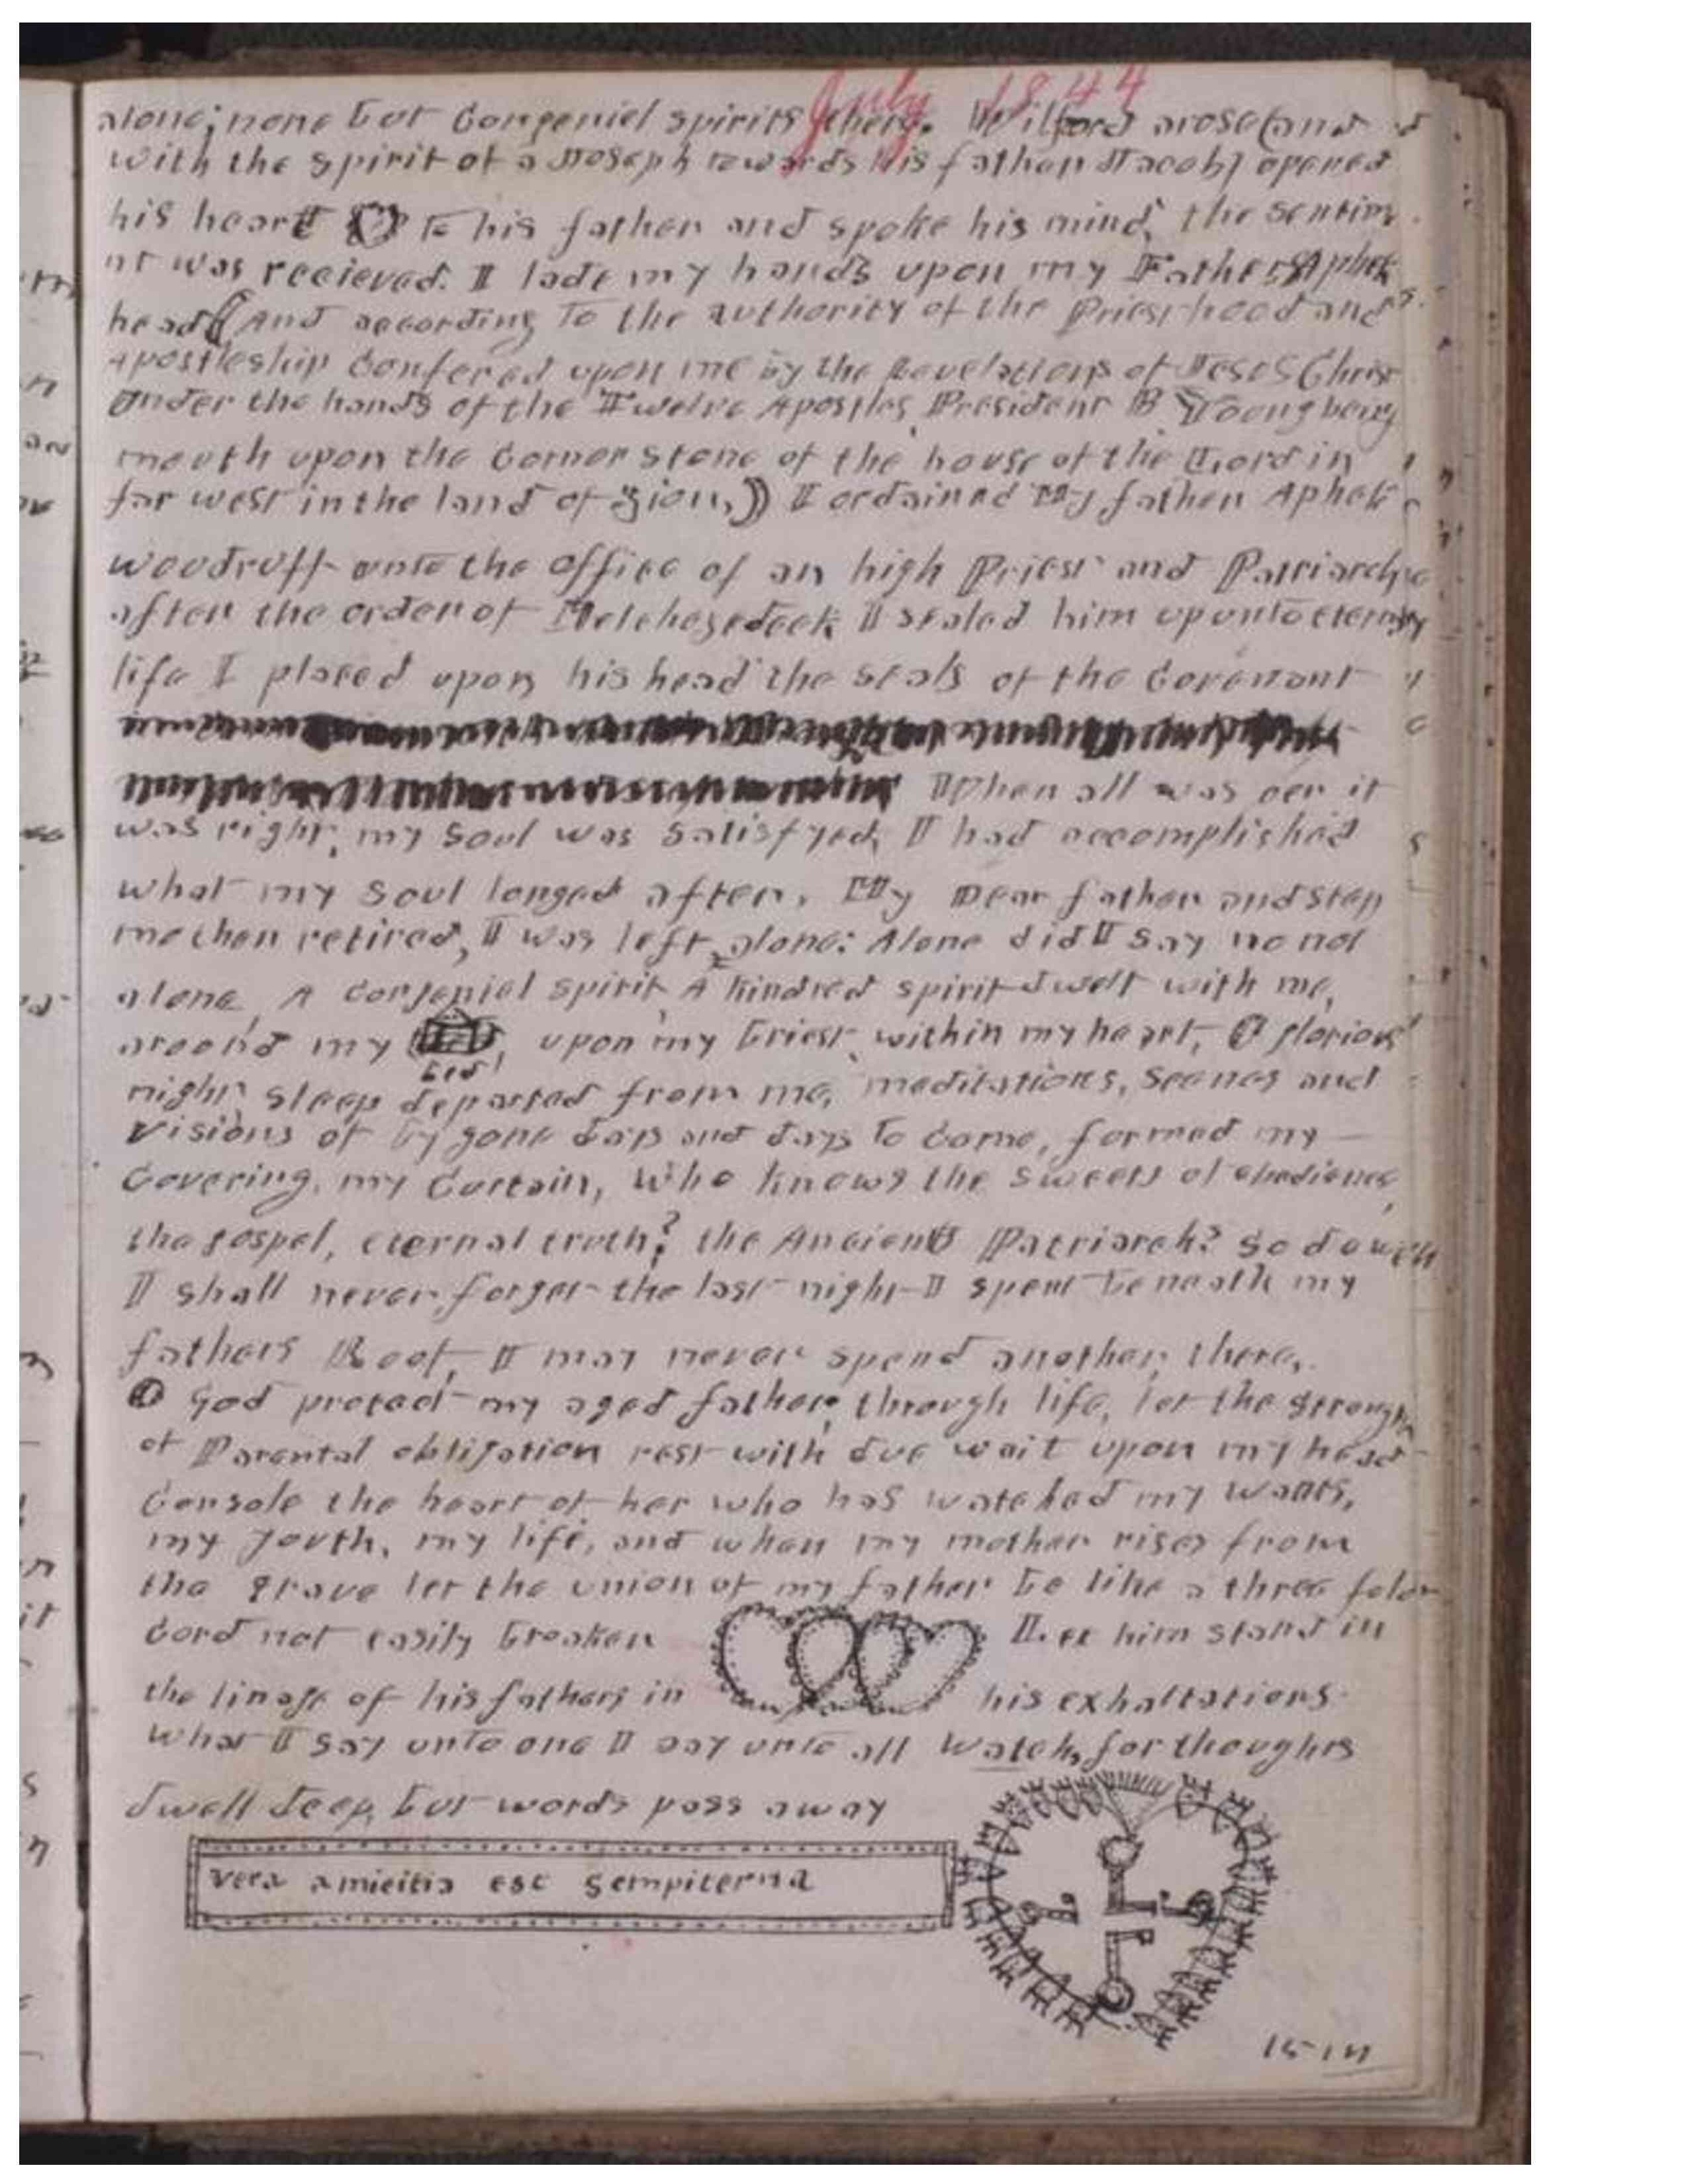 July 1844
alone; none but Congenial spirits there. Wilford arose (and
with the spirit of a Joseph towards his father Jacob) opened
his heart to his father and spoke his mind, the sentim
nt was recieved. I lade my hands upon my Father Aphek
head (And according to the authority of the Priesthood and
Apostleship Confered upon me by the Revelations of Jesus Christ
under the hands of the Twelve Apostles, President B Young being
mouth upon the Corner stone of the house of the Lord in
far west in the land of Zion,)) I ordained My father Aphek
woodruff unto the office of an high Priest and Patriarch
after the order of Melchezedeek I sealed him up unto eternal
life I placed upon his head the seals of the Covenant
When all was oer it
was right, my soul was satisfyed, I had accomplished
what my soul longed after. My Dear father and step
mother retired, I was left alone: Alone did I say no not
alone A Congenial spirit, A kindred spirit dwelt with me,
around my bed, upon my briest, within my heart, O glorious
night sleep departed from me, meditations, scenes and
visions of by gone days and days to Come, formed my
Covering, my Curtain, Who knows the sweets of obedience,
the gospel, eternal truth? the Ancient Patriarch? So do
I shall never forget the last night I spent beneath my
fathers Roof, I may never spend another there,
O God protect my aged father, through life, let the strength
of Parental obligation rest with due wait upon my head
Console the heart of her who has watched my wants,
my youth, my life, and when my mother rises from
the grave let the union of my father be like a three fold
Cord not easily broaken Let him stand in
the linage of his fathers in his exhaltations.
What I say unto one I say unto all Watch, for thoughts
dwell deep, but words pass away
vera amicitia est sempiterna
15th